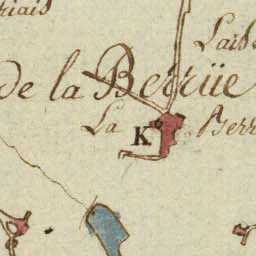 riais
Lais
de la Berrüe
La Berr
K